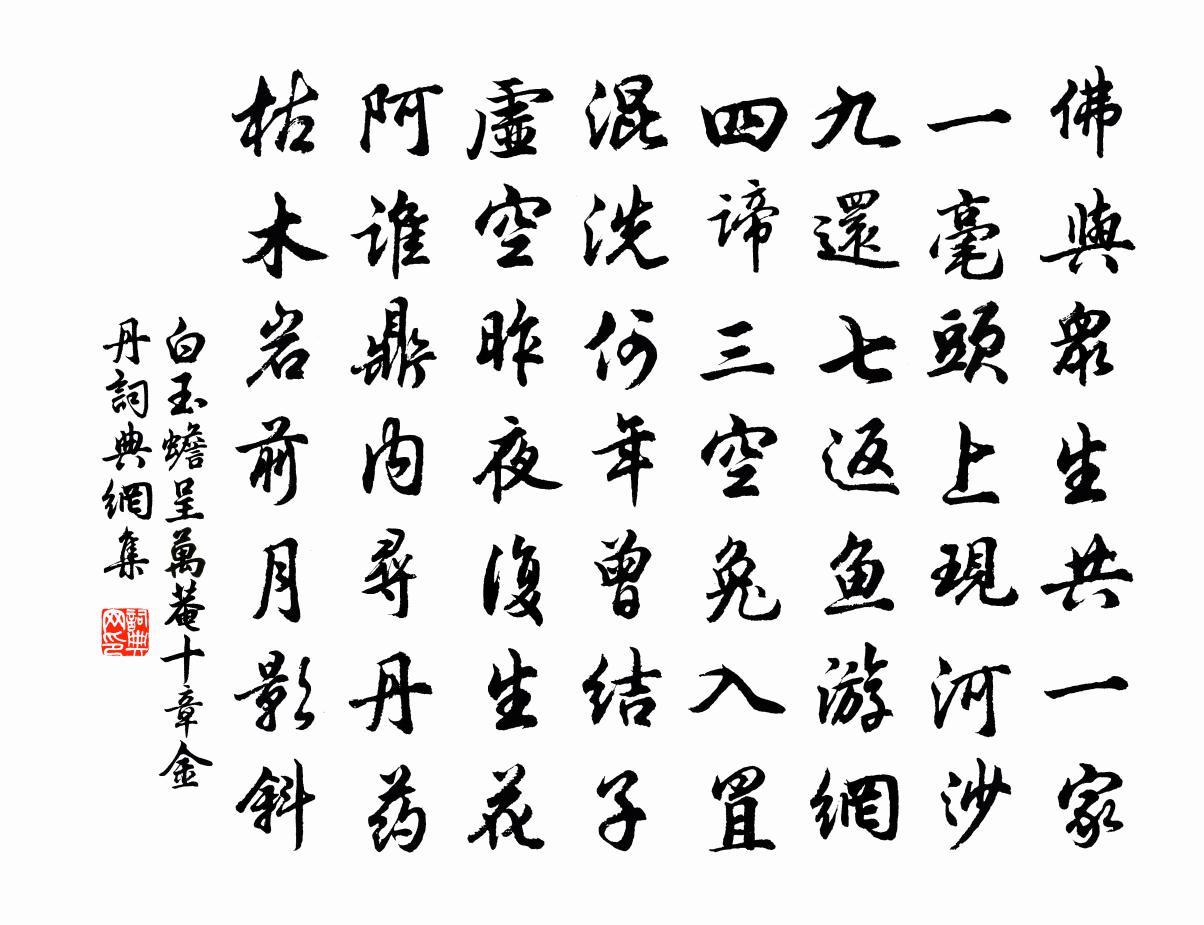 佛與眾生共一家
一毫頭上現河沙
九還七返魚游網
四諦三空兔入罝
混洗何年曾結子
虛空昨夜復生花
阿誰鼎內尋丹药
枯木岩前月影斜
白玉蟾呈萬菴十章金
丹詞典網集
詞典网印